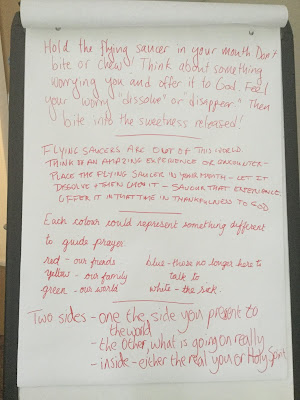 Hold the flying saucer in your mouth Don't
bite or chew! Think about something
worrying you and offer it to God. Feel
your worry "dissolve" or "disappear." Then
bite into the sweetness released!
FLYING SAUCERS ARE OUT OF THIS WORLD.
THINK OF AN AMAZING EXPERIENCE OR ENCOUNTER -
PLACE THE FLYING SAUCER IN YOUR MOUTH - LET IT
DISSOLVE & THEN CHEW IT - SAVOUR THAT EXPERIENCE
OFFER IT IN THAT TIME IN THANKFULNESS TO GOD
Each colour could represent something different
to guide prayer.
red - our friends
yellow - our family
green - our world
blue - those no longer here to
talk to
white - the sick.
Two sides - one the side you present to
the world
- the other, what is going on really
- inside - either the real you or Holy Spirit